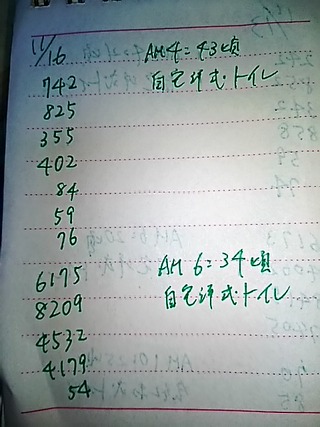 11/16 AM4=43頃
742 自宅洋式トイレ
825
355
402
84
59
76
6175 AM 6=34頃
8209 自宅洋式トイレ
4532
4179
54